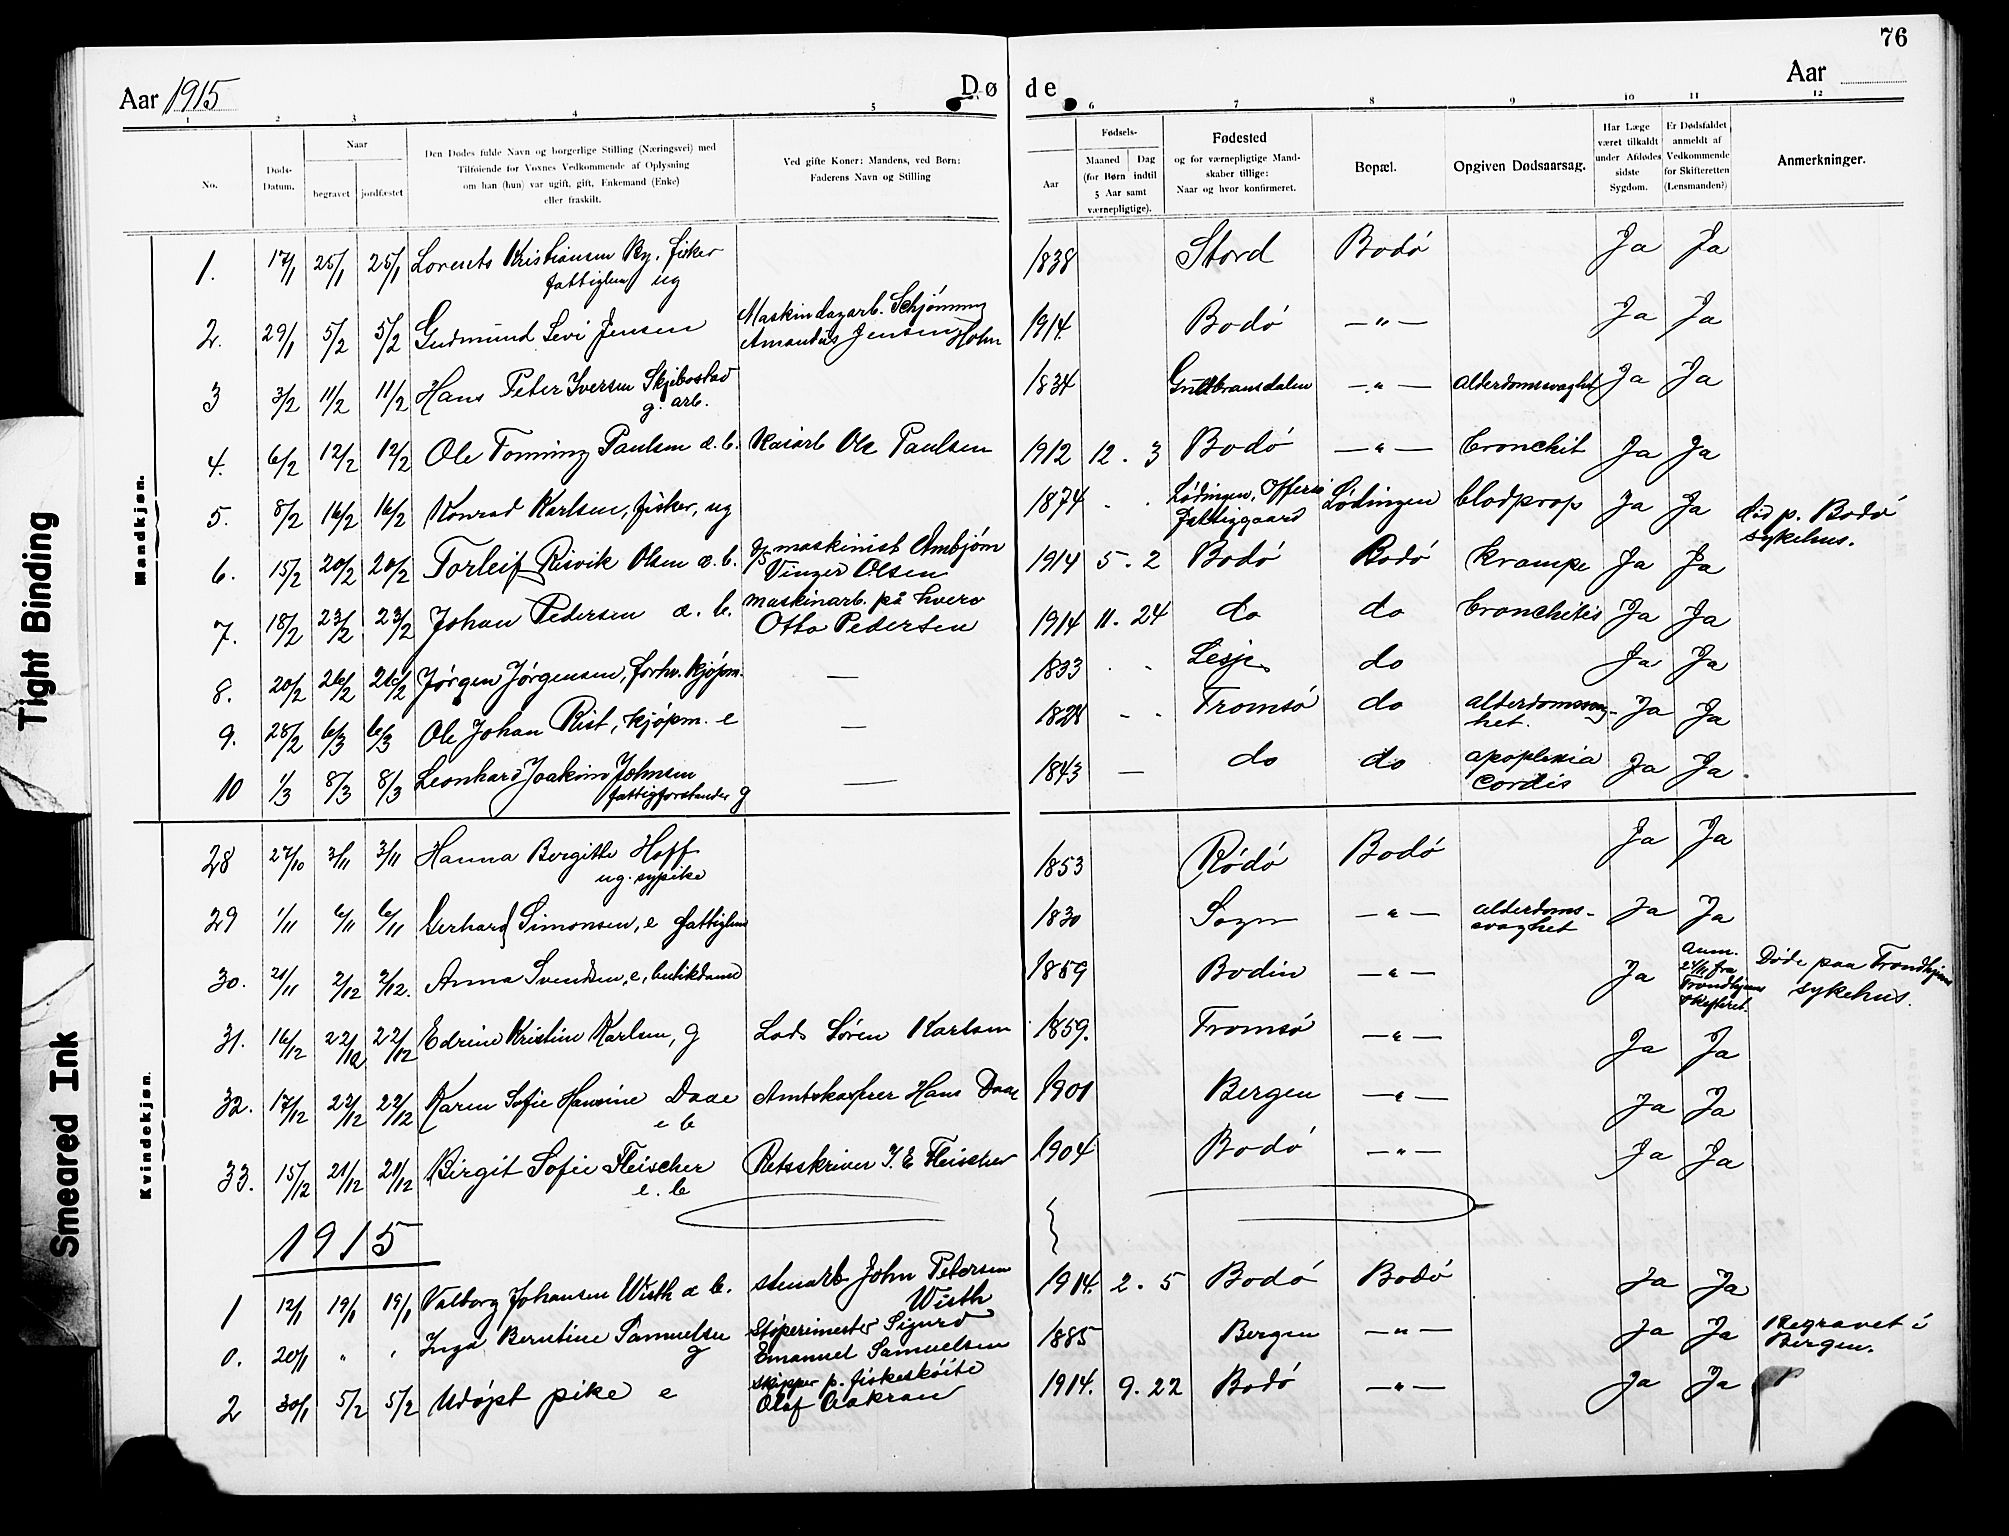 76
Aar 1915
Døde
Aar
1 2 3 4 5 6 7 8 9 10 11 12
No.
Døds-Datum.
Naar
begravet jordfæstet
Den Dødes fulde Navn og borgerlige Stilling (Næringsvei) med
Tilføiende for Voxnes Vedkommende af Oplysning
om han (hun) var ugift, gift, Enkemand (Enke)
eller fraskilt.
Ved gifte Koner: Mandens, ved Børn:
Faderens Navn og Stilling
Fødsels-
Aar
Maaned Dag
(for Børn indtil
5 Aar samt
værnepligtige).
Fødested
og for værnepligtige Mand-
skaber tillige:
Naar og hvor konfirmeret.
Bopæl.
Opgiven Dødsaarsag.
Har Læge
været tilkaldt
under Afdødes
sidste
Sygdom.
Er Dødsfaldet
anmeldt af
Vedkommende
for Skifteretten
(Lensmanden?)
Anmerkninger.
Mandkjøn.
1. 17/1 25/1 25/1 Lorents Kristiansen Ry, fisker 1838 Stord Bodó Ja Ja
fattiglem ug
2. 29/1 5/2 5/2 Gudmund Levi Jensen Maskindagarb. Schjønning 1914. Bodó —"— Ja Ja
Amandus Jensen Holm
3 3/2 11/2 11/2 Hans Peter Iversen Skjebostad 1834 Gudbransdalen —"— alderdomssvaghet Ja Ja
g. arb.
4. 6/2 12/2 12/2 Ole Tonning Paulsen æ.b. Kaiarb Ole Paulsen 1912 12 . 3 Bodó —"— bronchit Ja Ja
5. 8/2 16/2 16/2 Konrad Karlsen, fisker, ug 1874 . . Lødingen, Offersø Lödingen blodprop Ja Ja død p. Bodó
fattiggaard sykehus.
6. 15/2 20/2 20/2 Torleif Risvik Olsen æ.b. D/S maskinist Arnbjørn 1914 5 . 2 Bodó Bodó krampe Ja Ja
Vinger Olsen
7. 18/2 23/2 23/2 Johan Pedersen æ. b. maskinarb. på hverv 1914 11 . 24 do do bronchitis Ja Ja
Otto Pedersen
8. 20/2 26/2 26/2 Jørgen Jørgensen, forhv. kjøpm. — 1833 . . Lesje do Ja Ja
9. 28/2 6/3 6/3 Ole Johan Rist, kjöpm. e — 1828 - . Tromsó do alderdomssvag- Ja Ja
het.
10 1/3 8/3 8/3 Leonhard Joakim Johnsen — 1843 — do do apoplexia Ja Ja.
fattigforstander g cordis
Kvindekjøn.
28 27/10 3/11 3/11 Hanna Bergitte Hoff 1853 Ródó Bodó Ja Ja
ug. sypike
29 1/11 6/11 6/11 Gerhard Simonsen, e fattiglem 1830 Sogn —"— alderdoms- Ja Ja
svaghet
30. 21/11 2/12 2/12. Anna Svendsen, e, butikdame 1859 Bodin —"— Ja anm. 24/11 fra Døde paa Trondhjems
Trondhjems skifteret. sykehus.
31. 16/12 22/12 22/12 Edrine Kristine Karlsen, g Lods Sören Karlsen 1859. Tromsó —"— Ja Ja
32. 17/12 22/12 22/12 Karen Sofie Hansine Daae Amtskasserer Hans Daae 1901 Bergen —"— Ja Ja
e b
33. 15/12 21/12 21/12 Birgit Sofie Fleischer Retsskriver J. E Fleischer 1904 Bodó —"— Ja Ja
e. b
1915
1 12/1 19/1 19/1 Valborg Johansen Wisth æ b. stenarb John Petersen 1914. 2 . 5 Bodó Bodó Ja Ja
Wisth
0. 20/1 " " Inga Berntine Samuelsen Støperimester Sigurd 1885 Bergen —"— Ja Ja Begravet i
g Emanuel Samuelsen Bergen.
2 30/1 5/2 5/2 Udöpt pike e skipper p. fiskeskóite 1914. 9 . 22 Bodó —"— Ja Ja
Olaf Aakran
Tight Binding
Smeared Ink